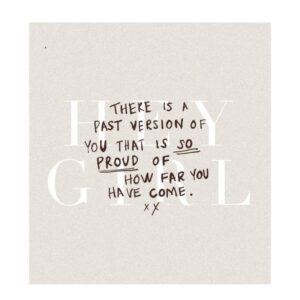 HEY
GIRL
THERE IS A
PAST VERSION OF
YOU THAT IS SO
PROUD OF
HOW FAR YOU
HAVE COME.
xx